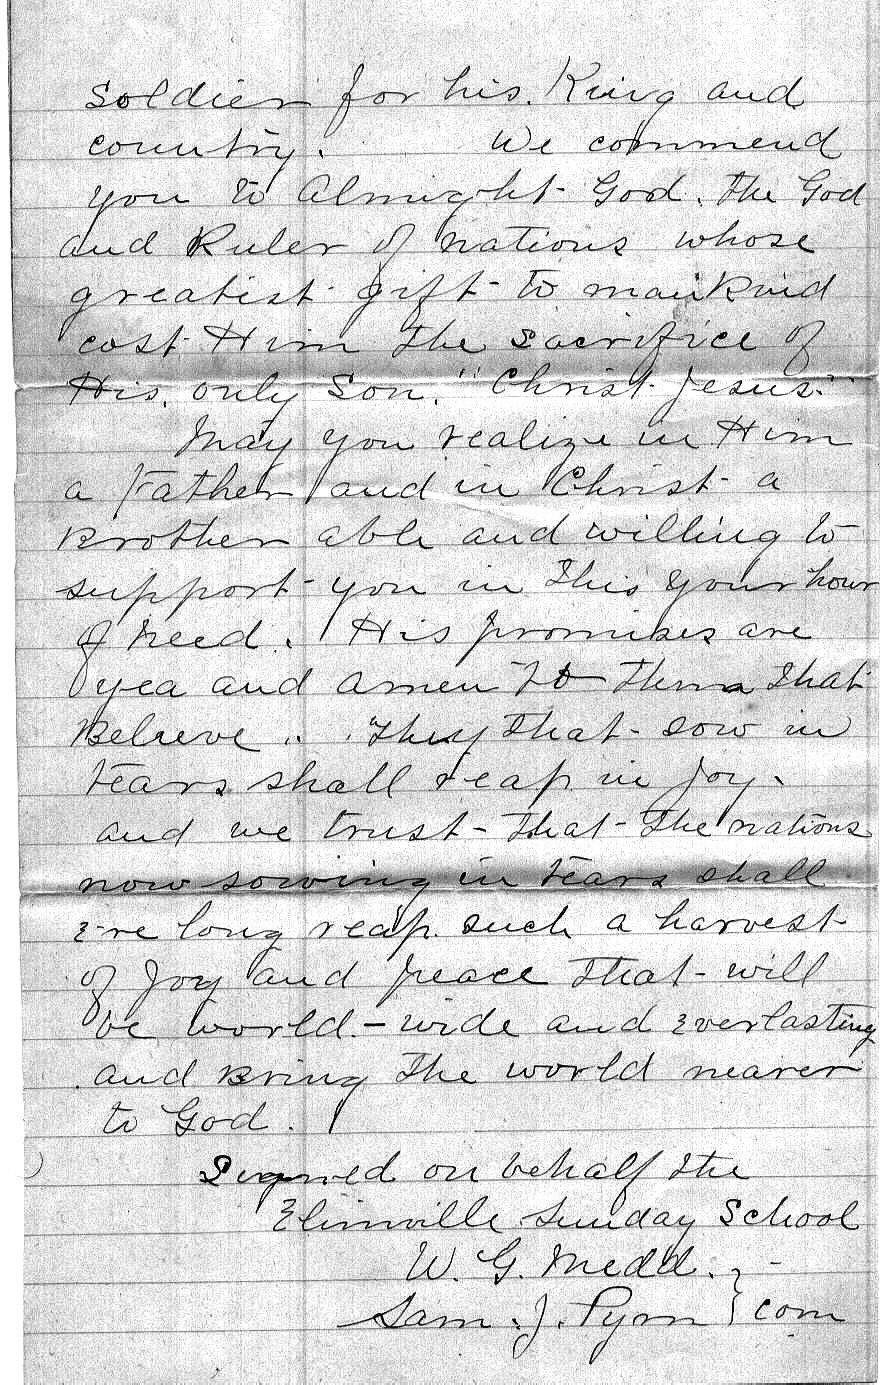 soldier for his. King and
country. We commend
you to Almight God. The God
and Ruler of nations whose
greatist gift to mankind
cost Him the sacrifice of
His. only Son. "Christ Jesus."
May you realize in Him
a Father and in Christ a
Brother able and willing to
support you in this your hour
of need. His promises are
yea and amen to them that
Believe. They that sow in
tears shall reap in joy.
and we trust that the nations
now sowing in tears shall
Ere long reap such a harvest
of Joy and peace that will
be world-wide and Everlasting
and Bring the world nearer
to God.
Signed on behalf the
Elimville Sunday School
W. G. Medd. }
Sam. J. Pym } com